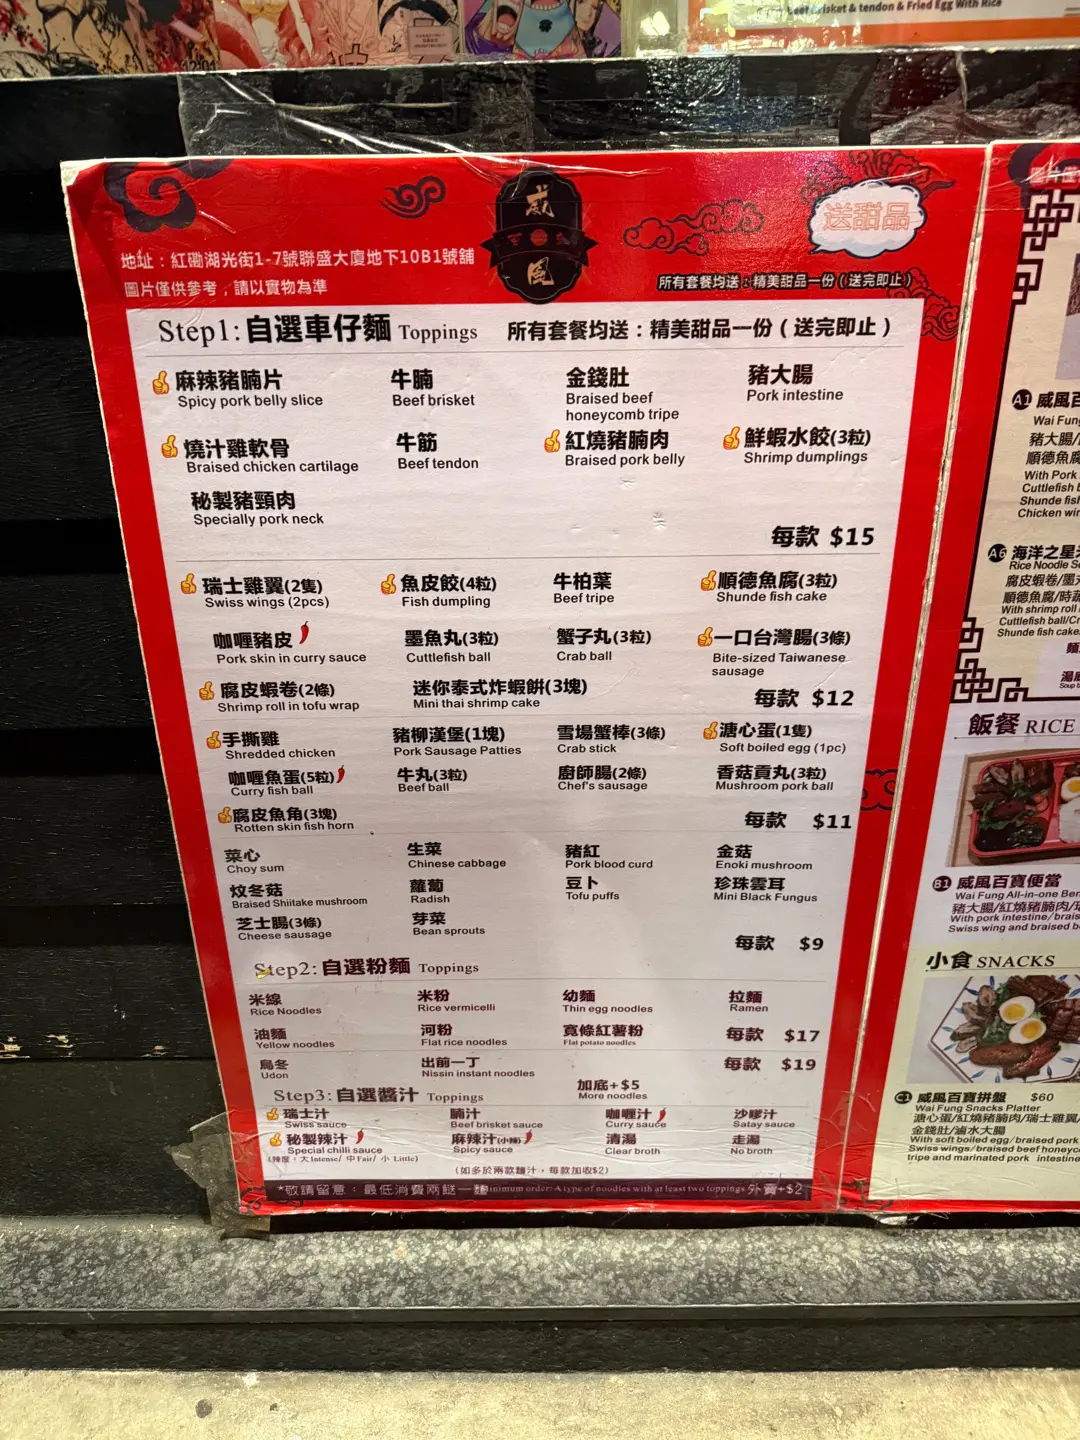 Beef Brisket & tendon & Fried Egg With Rice
威
風
送甜品
地址：紅磡湖光街1-7號聯盛大廈地下10B1號舖
圖片僅供參考，請以實物為準
所有套餐均送：精美甜品一份（送完即止）
Step1:自選車仔麵 Toppings 所有套餐均送：精美甜品一份（送完即止）
麻辣豬腩片 牛腩 金錢肚 豬大腸
Spicy pork belly slice Beef brisket Braised beef honeycomb tripe Pork intestine
燒汁雞軟骨 牛筋 紅燒豬腩肉 鮮蝦水餃(3粒)
Braised chicken cartilage Beef tendon Braised pork belly Shrimp dumplings
秘製豬頸肉
Specially pork neck
每款 $15
瑞士雞翼(2隻) 魚皮餃(4粒) 牛柏葉 順德魚腐(3粒)
Swiss wings (2pcs) Fish dumpling Beef tripe Shunde fish cake
咖喱豬皮 墨魚丸(3粒) 蟹子丸(3粒) 一口台灣腸(3條)
Pork skin in curry sauce Cuttlefish ball Crab ball Bite-sized Taiwanese sausage
腐皮蝦卷(2條) 迷你泰式炸蝦餅(3塊)
Shrimp roll in tofu wrap Mini thai shrimp cake
每款 $12
手撕雞 豬柳漢堡(1塊) 雪場蟹棒(3條) 溏心蛋(1隻)
Shredded chicken Pork Sausage Patties Crab stick Soft boiled egg (1pc)
咖喱魚蛋(5粒) 牛丸(3粒) 廚師腸(2條) 香菇貢丸(3粒)
Curry fish ball Beef ball Chef's sausage Mushroom pork ball
腐皮魚角(3塊)
Rotten skin fish horn
每款 $11
菜心 生菜 豬紅 金菇
Choy sum Chinese cabbage Pork blood curd Enoki mushroom
炆冬菇 蘿蔔 豆卜 珍珠雲耳
Braised Shiitake mushroom Radish Tofu puffs Mini Black Fungus
芝士腸(3條) 芽菜
Cheese sausage Bean sprouts
每款 $9
Step2:自選粉麵 Toppings
米線 米粉 幼麵 拉麵
Rice Noodles Rice vermicelli Thin egg noodles Ramen
油麵 河粉 寬條紅薯粉 每款 $17
Yellow noodles Flat rice noodles Flat potato noodles
烏冬 出前一丁 每款 $19
Udon Nissin instant noodles
加底+$5
More noodles
Step3:自選醬汁 Toppings
瑞士汁 腩汁 咖喱汁 沙嗲汁
Swiss sauce Beef brisket sauce Curry sauce Satay sauce
秘製辣汁 麻辣汁(小辣) 清湯 走湯
Special chilli sauce Spicy sauce Clear broth No broth
(辣度：大 Intense/ 中 Fair/ 小 Little)
(如多於兩款麵汁，每款加收$2)
*敬請留意：最低消費兩餸一麵 inimum order: A type of noodles with at least two toppings 外賣+$2
A1 威風百
Wai Fung
豬大腸/
順德魚腐
With Pork
Cuttlefish b
Shunde fish
Chicken win
A6 海洋之星
Rice Noodle So
腐皮蝦卷/墨
順德魚腐/時蔬
With shrimp roll
Cuttlefish ball/Cr
Shunde fish cake
麵
湯底
飯餐 RICE
B1 威風百寶便當
Wai Fung All-in-one Ben
豬大腸/紅燒豬腩肉/瑞
With pork intestine/brais
Swiss wing and braised b
小食 SNACKS
C1 威風百寶拼盤 $60
Wai Fung Snacks Platter
溏心蛋/紅燒豬腩肉/瑞士雞翼/
金錢肚/滷水大腸
With soft boiled egg/braised pork
Swiss wings/braised beef honeyc
tripe and marinated pork intestine